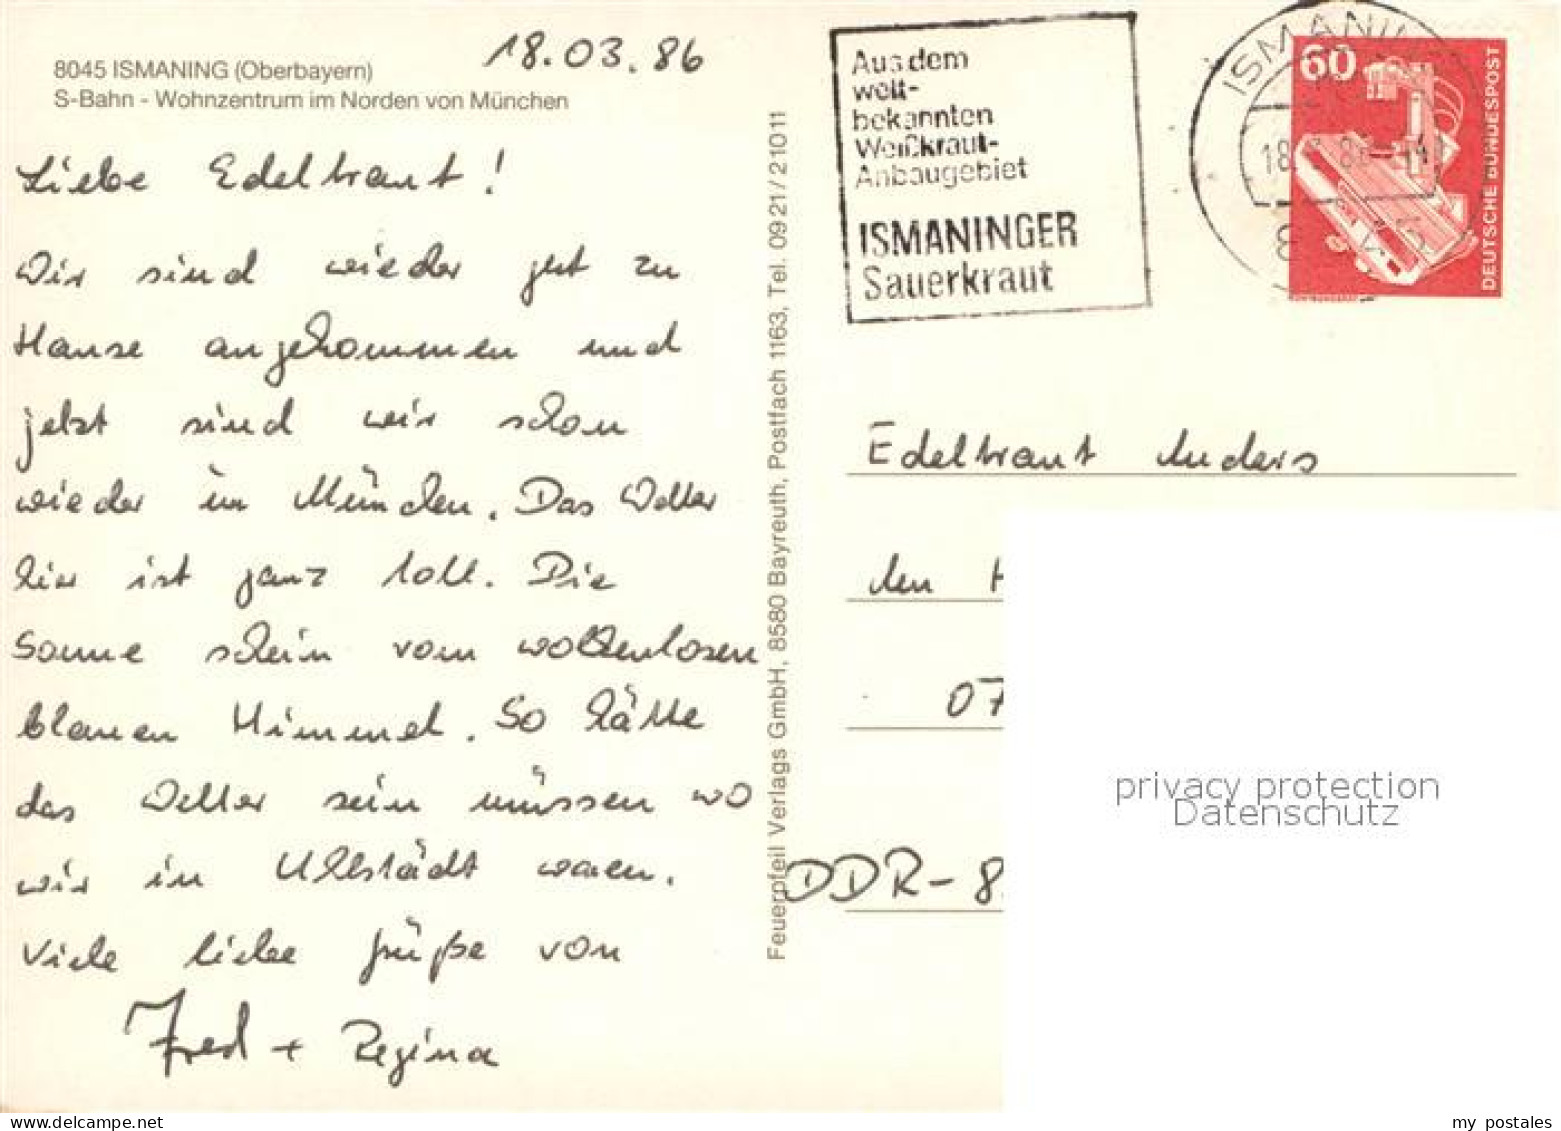 8045 ISMANING (Oberbayern)
S-Bahn - Wohnzentrum im Norden von München
18.03.86
Liebe Edeltraut!
Wir sind wieder gut zu
Hause angekommen und
jetzt sind wir schon
wieder in München. Das Wetter
hier ist ganz toll. Die
Sonne schein vom wolkenlosen
blauen Himmel. So hätte
das Wetter sein müssen wo
wir in Uhlstädt waren.
Viele liebe Grüße von
Fred + Regina
Feuerpfeil Verlags GmbH, 8580 Bayreuth, Postfach 1163, Tel. 0921/21011
Aus dem
welt-
bekannten
Weißkraut-
Anbaugebiet
ISMANINGER
Sauerkraut
ISMANING
60
DEUTSCHE BUNDESPOST
Edeltraut Anders
07
DDR-8
privacy protection
Datenschutz
my postales